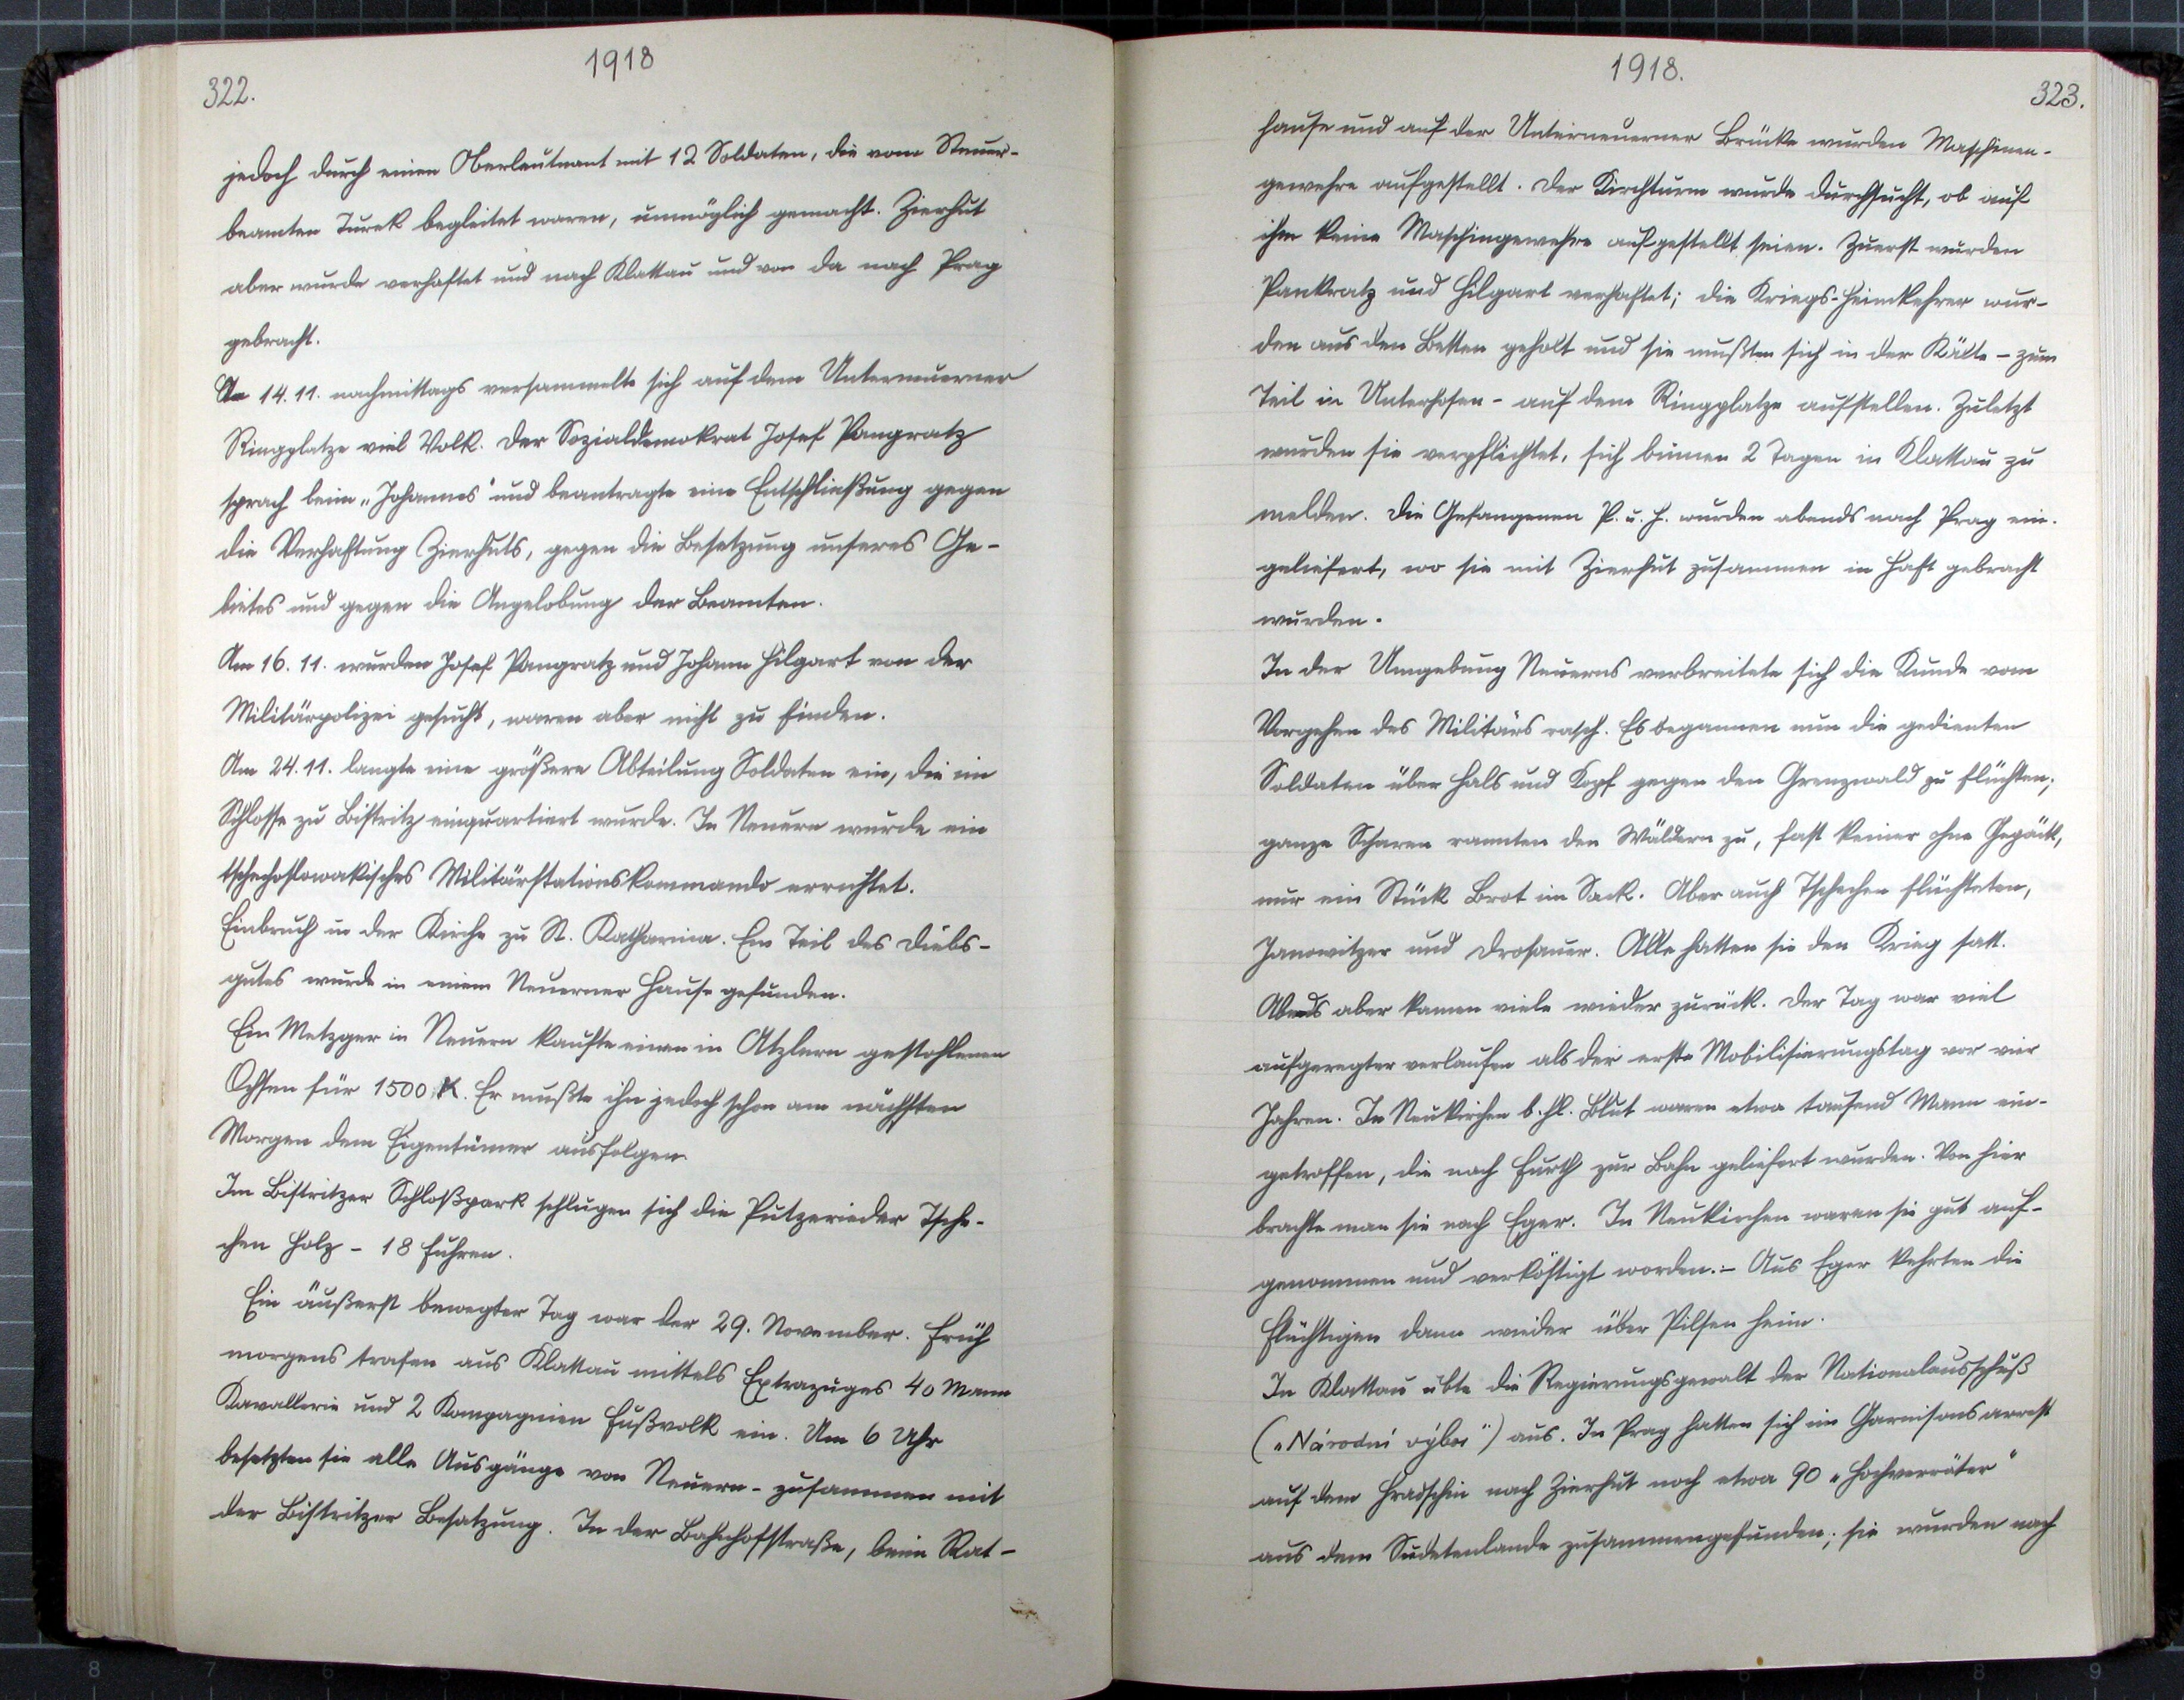 1918
322.
jedoch durch einen Oberleutnant mit 12 Soldaten, die vom Steuer-
beamten Turek begleitet waren, unmöglich gemacht. Zierhut
aber wurde verhaftet und nach Klattau und von da nach Prag
gebracht.
Am 14.11. nachmittags versammelte sich auf dem Unterneuerner
Ringplatze viel Volk. Der Sozialdemokrat Josef Pangratz
sprach beim „Johannes" und beantragte eine Entschließung gegen
die Verhaftung Zierhuts, gegen die Besetzung unseres Ge-
bietes und gegen die Angelobung der Beamten.
Am 16. 11. wurden Josef Pangratz und Johann Hilgart von der
Militärpolizei gesucht, waren aber nicht zu finden.
Am 24. 11. langte eine größere Abteilung Soldaten ein, die im
Schlosse zu Bistritz einquartiert wurde. In Neuern wurde ein
tschechoslowakisches Militärstationskommando errichtet.
Einbruch in der Kirche zu St. Katharina. Ein Teil des Diebs-
gutes wurde in einem Neuerner Hause gefunden.
Ein Metzger in Neuern kaufte einen in Atzlern gestohlenen
Ochsen für 1500 K. Er mußte ihn jedoch schon am nächsten
Morgen dem Eigentümer ausfolgen.
Im Bistritzer Schloßpark schlugen sich die Putzerieder Tsche-
chen Holz - 18 Fuhren.
Ein äußerst bewegter Tag war der 29. November. Früh
morgens trafen aus Klattau mittels Extrazuges 40 Mann
Kavallerie und 2 Kompagnien Fußvolk ein. Um 6 Uhr
besetzten sie alle Ausgänge von Neuern - zusammen mit
der Bistritzer Besatzung. In der Bahnhofstraße, beim Rat-
1918.
323.
hause und auf der Unterneuerner Brücke wurden Maschinen-
gewehre aufgestellt. Der Kirchturm wurde durchsucht, ob auf
ihm keine Maschingewehre aufgestellt seien. Zuerst wurden
Pankratz und Hilgart verhaftet; die Kriegs-Heimkehrer wur-
den aus den Betten geholt und sie mußten sich in der Kälte - zum
Teil in Unterhosen - auf dem Ringplatze aufstellen. Zuletzt
wurden sie verpflichtet, sich binnen 2 Tagen in Klattau zu
melden. Die Gefangenen P. u. H. wurden abends nach Prag ein-
geliefert, wo sie mit Zierhut zusammen in Haft gebracht
wurden.
In der Umgebung Neuerns verbreitete sich die Kunde vom
Vorgehen des Militärs rasch. Es begannen nun die gedienten
Soldaten über Hals und Kopf gegen den Grenzwald zu flüchten;
ganze Scharen rannten den Wäldern zu, fast keiner ohne Gepäck,
nur ein Stück Brot im Sack. Aber auch Tschechen flüchteten,
Janowitzer und Drosauer. Alle hatten sie den Krieg satt.
Abends aber kamen viele wieder zurück. Der Tag war viel
aufgeregter verlaufen als der erste Mobilisierungstag vor vier
Jahren. In Neukirchen b. hl. Blut waren etwa tausend Mann ein-
getroffen, die nach Furth zur Bahn geliefert wurden. Von hier
brachte man sie nach Eger. In Neukirchen waren sie gut auf-
genommen und verköstigt worden. - Aus Eger kehrten die
Flüchtigen dann wieder über Pilsen heim.
In Klattau übte die Regierungsgewalt der Nationalausschuß
(„Národní výbor") aus. In Prag hatten sich im Garnisonsarrest
auf dem Hradschin nach Zierhut noch etwa 90 „Hochverräter"
aus dem Sudetenlande zusammengefunden; sie wurden nach